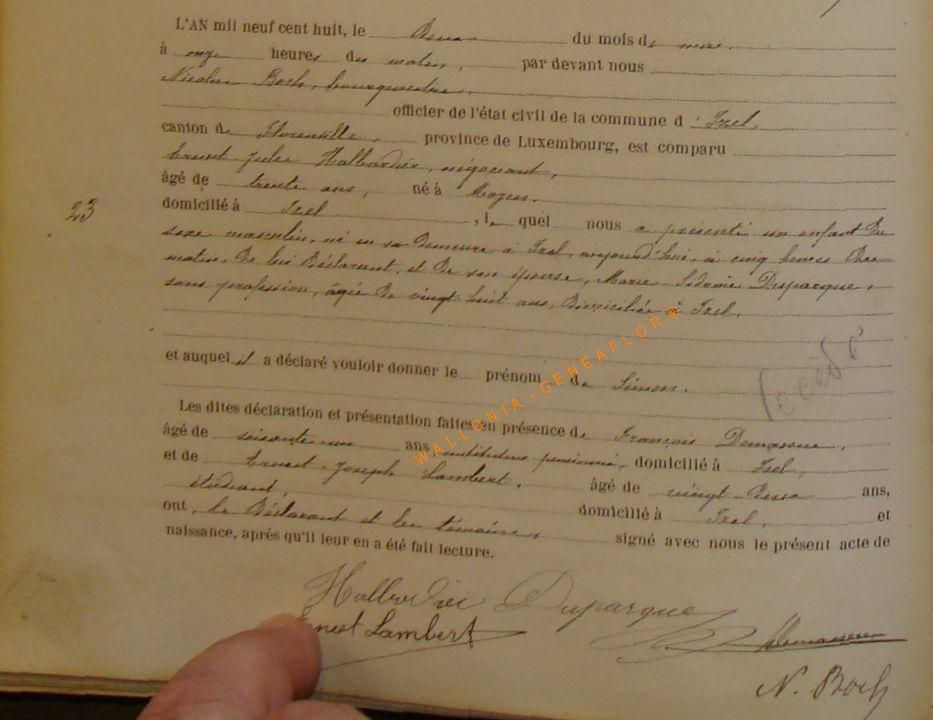 L'AN mil neuf cent huit, le deux du mois de mars,
à onze heures du matin, par devant nous
Nicolas Bock, bourgmestre,
officier de l'état civil de la commune d'Izel,
canton de Florenville, province de Luxembourg, est comparu
Ernest Jules Halbardier, négociant,
âgé de trente ans, né à Moyen,
23
domicilié à Izel, le quel nous a présenté un enfant du
sexe masculin, né en sa demeure à Izel, aujourd'hui, à cinq heures du
matin, de lui déclarant, et de son épouse, Marie Sidonie Duparque,
sans profession, âgée de vingt huit ans, domiciliée à Izel,
et auquel il a déclaré vouloir donner le prénom de Simon.
WALLONIA.GENEAFLOR©
Les dites déclaration et présentation faites en présence de François
âgé de soixante un ans, instituteur pensionné, domicilié à Izel,
et de Ernest Joseph Lambert, âgé de vingt deux ans,
étudiant, domicilié à Izel, et
ont, le déclarant et les témoins, signé avec nous le présent acte de
naissance, après qu'il leur en a été fait lecture.
Halbardier Duparque
Ernest Lambert
N. Bock